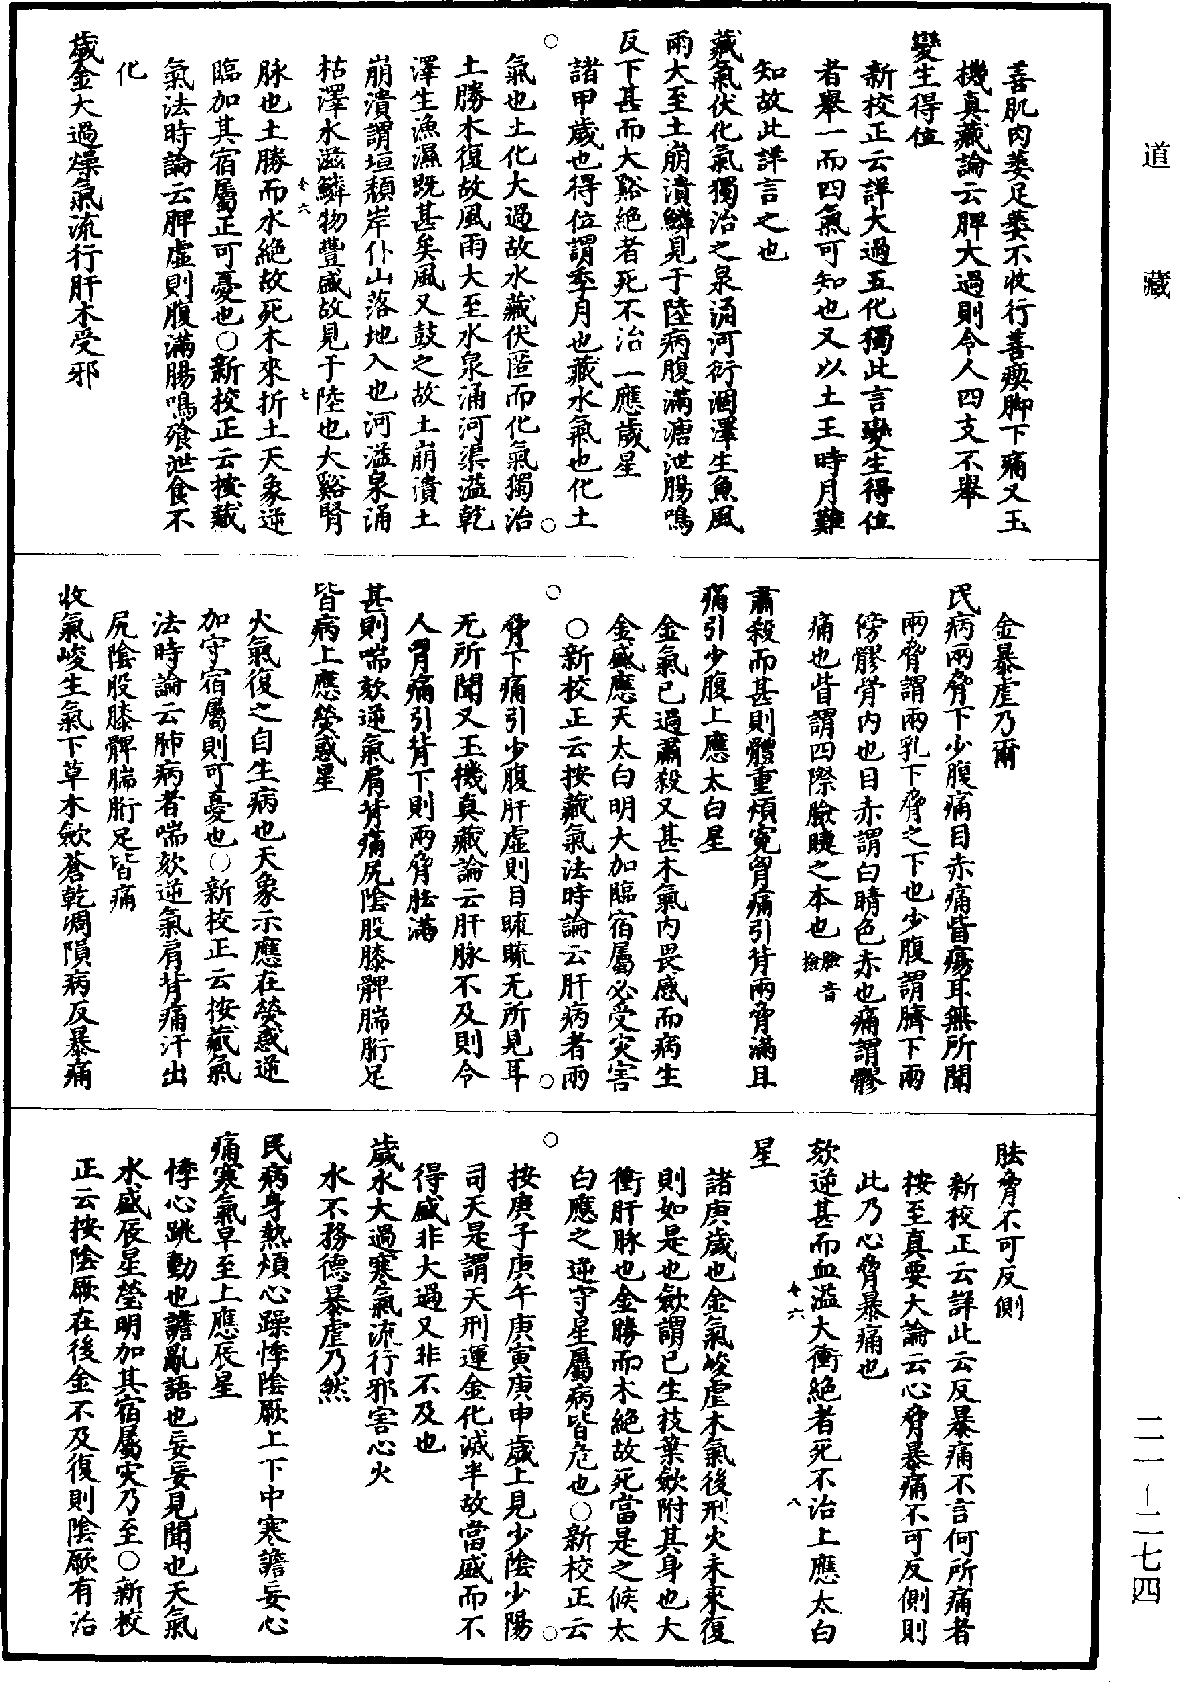 道藏
善肌肉萎足萎不收行善瘈脚下痛又玉
機真藏論云脾大過則令人四支不舉
變生得位
新校正云詳大過五化獨此言變生得位
者舉一而四氣可知也又以土王時月難
知故此詳言之也
藏氣伏化氣獨治之泉涌河衍涸澤生魚風
雨大至土崩潰鱗見于陸病腹滿溏泄腸鳴
反下甚而大谿絕者死不治一應歲星
諸甲歲也得位謂季月也藏水氣也化土
氣也土化大過故水藏伏匿而化氣獨治
土勝木復故風雨大至水泉涌河渠溢乾
澤生漁濕既甚矣風又鼓之故土崩潰土
崩潰謂垣頹岸仆山落地入也河溢泉涌
枯澤水滋鱗物豐盛故見于陸也大谿腎
脉也土勝而水絕故死木來折土天象逆
臨加其宿屬正可憂也○新校正云按藏
氣法時論云脾虛則腹滿腸鳴飱泄食不
化
歲金大過燥氣流行肝木受邪
金暴虐乃爾
民病兩脅下少腹痛目赤痛眥瘍耳無所聞
兩脅謂兩乳下脅之下也少腹謂臍下兩
傍髎骨內也目赤謂白睛色赤也痛謂髎
痛也眥謂四際瞼睫之本也瞼音撿
肅殺而甚則體重煩寃胷痛引背兩脅滿且
痛引少腹上應太白星
金氣已過肅殺又甚木氣內畏感而病生
金盛應天太白明大加臨宿屬必受灾害
○新校正云按藏氣法時論云肝病者兩
脅下痛引少腹肝虛則目䀮䀮无所見耳
无所聞又玉機真藏論云肝脉不及則令
人胷痛引背下則兩脅胠滿
甚則喘欬逆氣肩背痛尻陰股膝髀腨胻足
皆病上應熒惑星
火氣復之自生病也天象示應在熒惑逆
加守宿屬則可憂也○新校正云按藏氣
法時論云肺病者喘欬逆氣肩背痛汗出
尻陰股膝髀腨胻足皆痛
收氣峻生氣下草木歛蒼乾凋隕病反暴痛
胠脅不可反側
新校正云詳此云反暴痛不言何所痛者
按至真要大論云心脅暴痛不可反側則
此乃心脅暴痛也
欬逆甚而血溢大衝絕者死不治上應太白
星
諸庚歲也金氣峻虐木氣後刑火未來復
則如是也歛謂已生枝葉歛附其身也大
衝肝脉也金勝而木絕故死當是之候太
白應之逆守星屬病皆危也○新校正云
按庚子庚午庚寅庚申歲上見少陰少陽
司天是謂天刑運金化減半故當盛而不
得盛非大過又非不及也
歲水大過寒氣流行邪害心火
水不務德暴虐乃然
民病身熱煩心躁悸陰厥上下中寒譫妄心
痛寒氣早至上應辰星
悸心跳動也譫亂語也妄妄見聞也天氣
水盛辰星瑩明加其宿屬灾乃至○新校
正云按陰厥在後金不及復則陰厥有治
二一—二七四